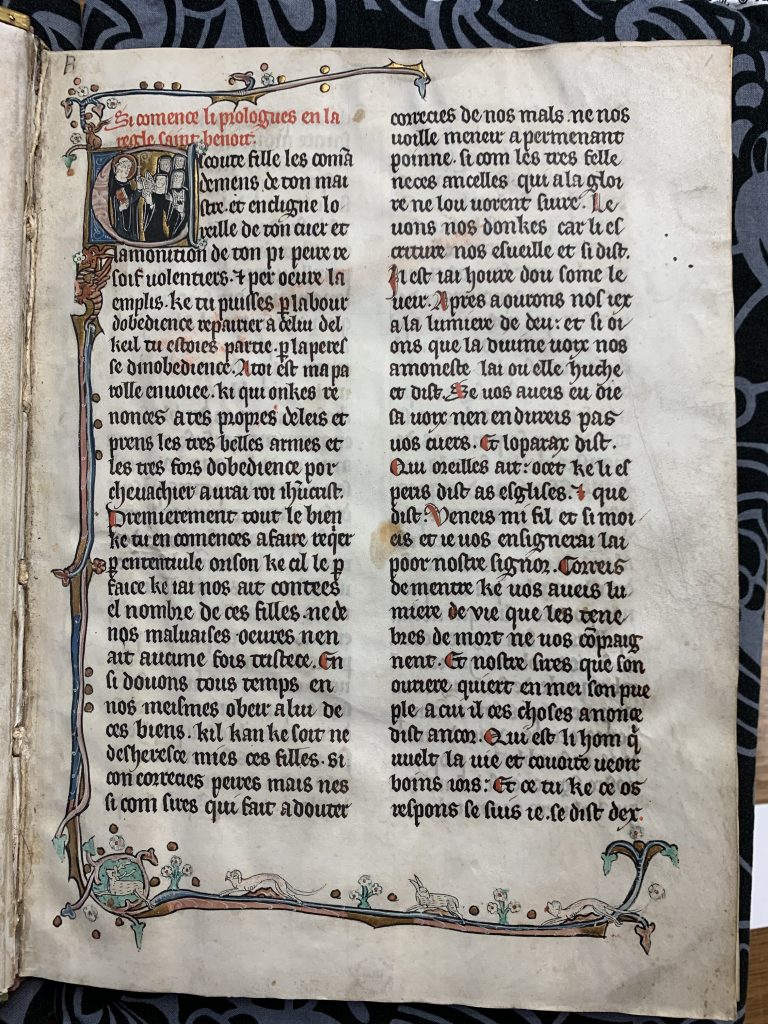 Si comence li prologues en la
regle saint benoit.
Escoute fille les comā
demens de ton mai
stre. et encligne lo
reille de ton cuer et
lamonition de ton pi peire re
soif uolentiers. ⁊ per oeure la
emplis. ke tu puisses ꝑ labour
dobedience repairier a celui del
keil tu estoies partie. ꝑ la peres
se dinobedience. A toi est ma pa
rolle enuoice. ki qui onkes re
nonces a tes propres deleis et
prens les tres belles armes et
les tres fors dobedience por
cheuachier a urai roi ihūcrist.
Premierement tout le bien
ke tu en comences a faire reqͥer
ꝑ ententiule orison ke cil le ꝑ
faice ke iai nos ait contees
el nombre de ces filles. ne de
nos maluaises oeures nen
ait aucune fois tristece. En
si douons tous temps en
nos meismes obeir a lui de
ces biens. kil kan ke soit ne
desheresce mies ces filles. si
con correcies peires mais nes
si com sires qui fait a douter
correcies de nos mals. ne nos
uoille meneir a permenant
poinne. si com les tres felle
neces ancelles qui a la gloi
re ne lou uorent siure. Le
uons nos donkes car li es
criture nos esueille et si dist.
Il est iai houre dou some le
ueir. Apres aourons nos iex
a la lumiere de deu: et si oi
ons que la diuine uoix nos
amoneste lai ou elle huche
et dist. Se uos aueis eu die
sa uoix nen endureis pas
uos cuers. Et loparax dist.
Qui oreilles ait: ocet ke li es
peris dist as esglises. ⁊ que
dist: Veneis mi fil et si moi
eis et ie uos ensignerai lai
poor nostre signor. Correis
dementre ke uos aueis lu
miere de vie que les tene
bres de mort ne uos cōpraig
nent. Et nostre sires que son
ouriere quiert en mei son pue
ple a cui il ces choses anonce
dist ancor. Qui est li hom q̄
wuelt la uie et couoite ueoir
boins iors: Et ce tu ke ce os
respons se suis ie. se dist dex.